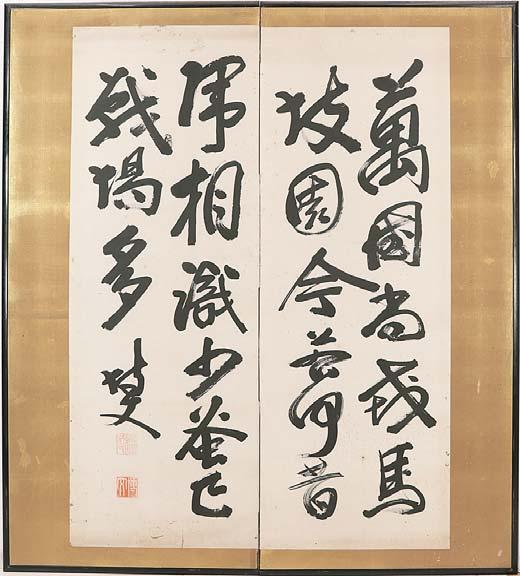 萬國尚戎馬
故園今若何昔
歸相識少蚤已
戰場多